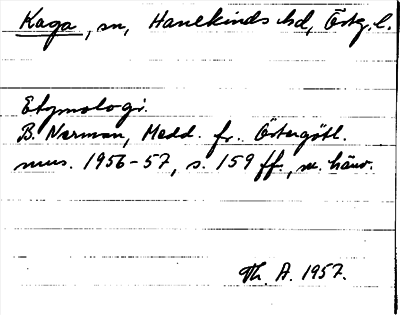 Kaga, sn, Hanekinds hd, Östg. l.
Etymologi.
B. Nerman, Medd. fr. Östergötl.
mus. 1956-57, s. 159 ff., m. hänv.
Th. A. 1957.